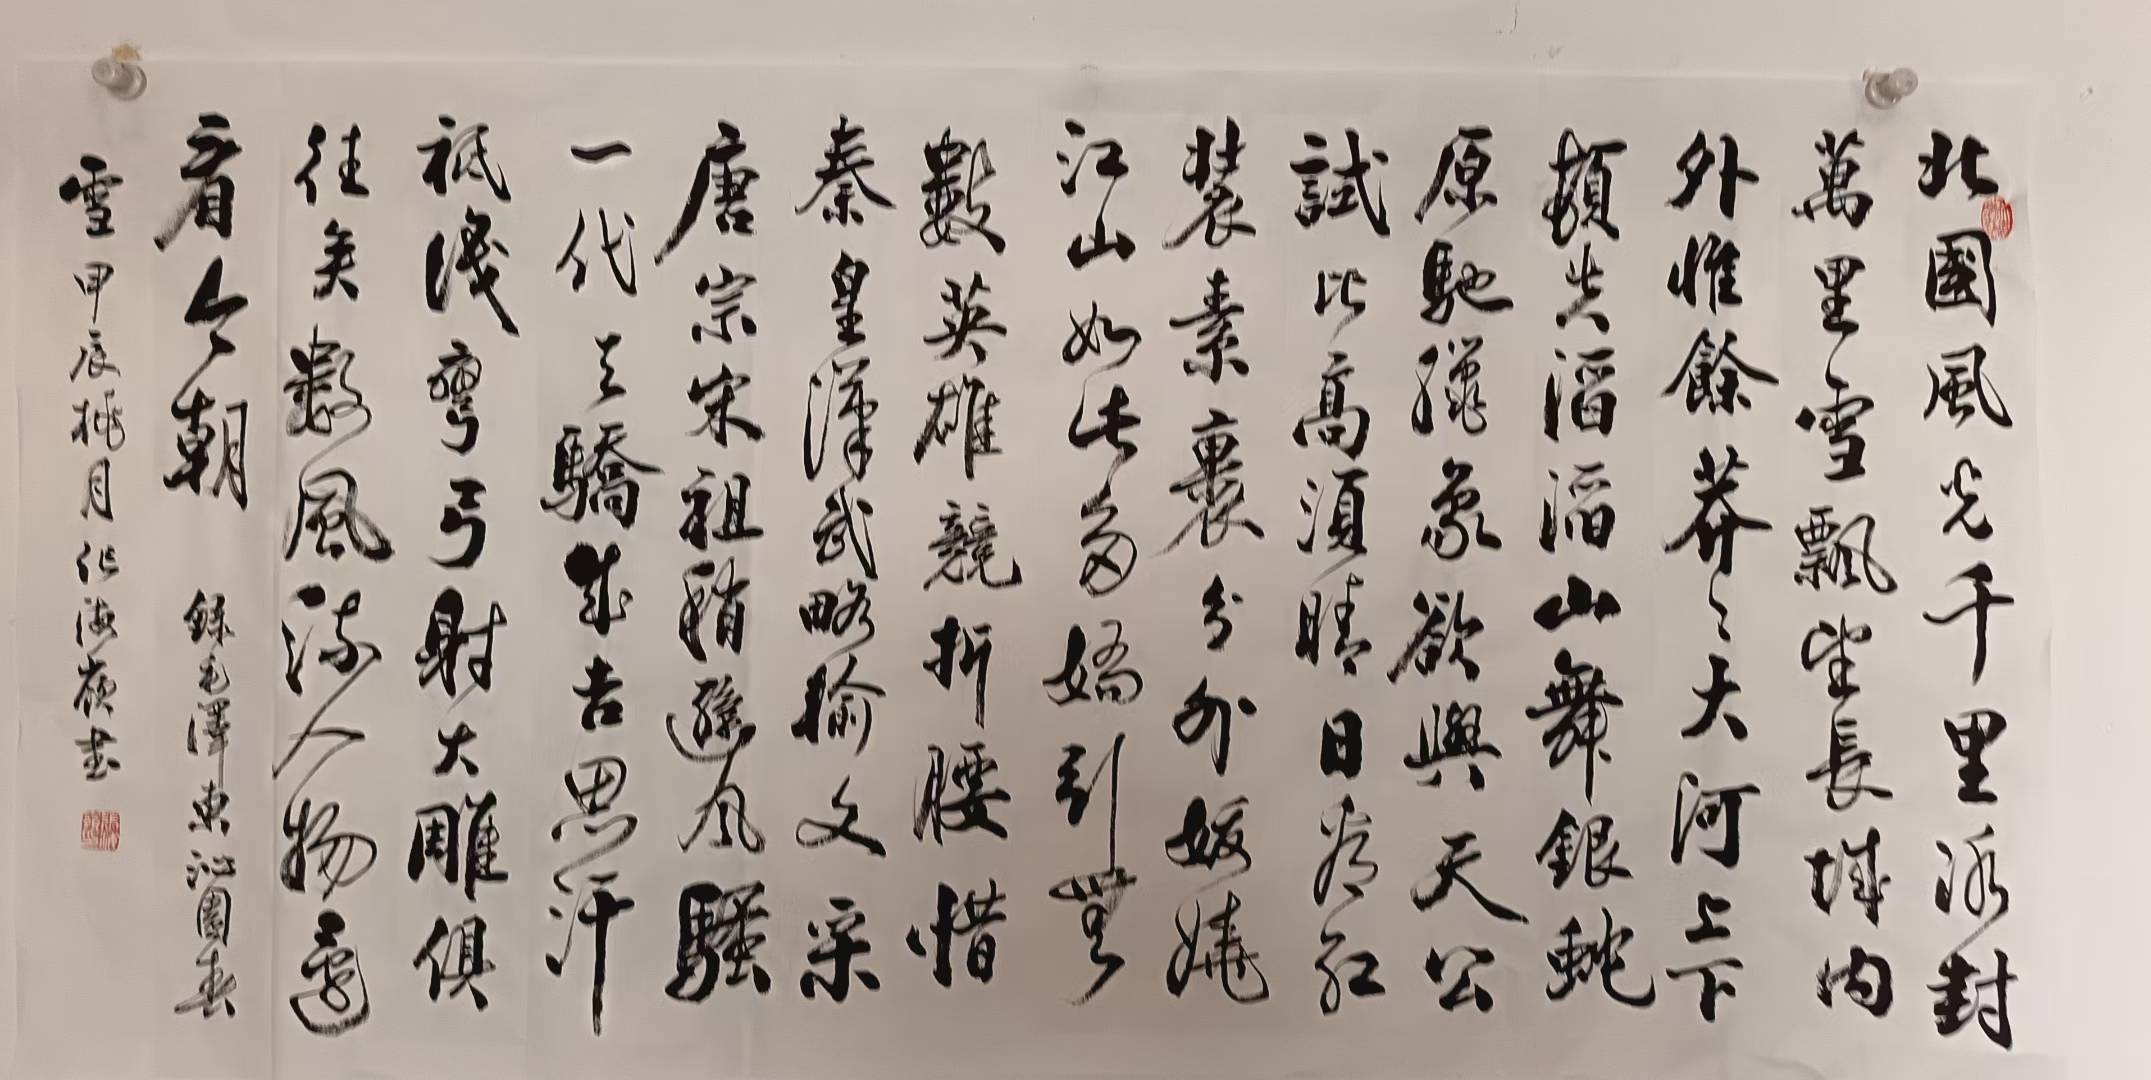 北國風光千里冰封
萬里雪飄望長城内
外惟餘莽々大河上下
頓失滔滔山舞銀蛇
原馳蠟象欲與天公
試比高須晴日看紅
裝素裹分外嬈
江山如此多嬌引無
數英雄競折腰惜
秦皇漢武略輸文采
唐宗宋祖稍遜风騷
一代天驕成吉思汗
祇識彎弓射大雕俱
往矣數風流人物還
看今朝 錄毛澤東沁園春
雪 甲辰桃月 海嶺書